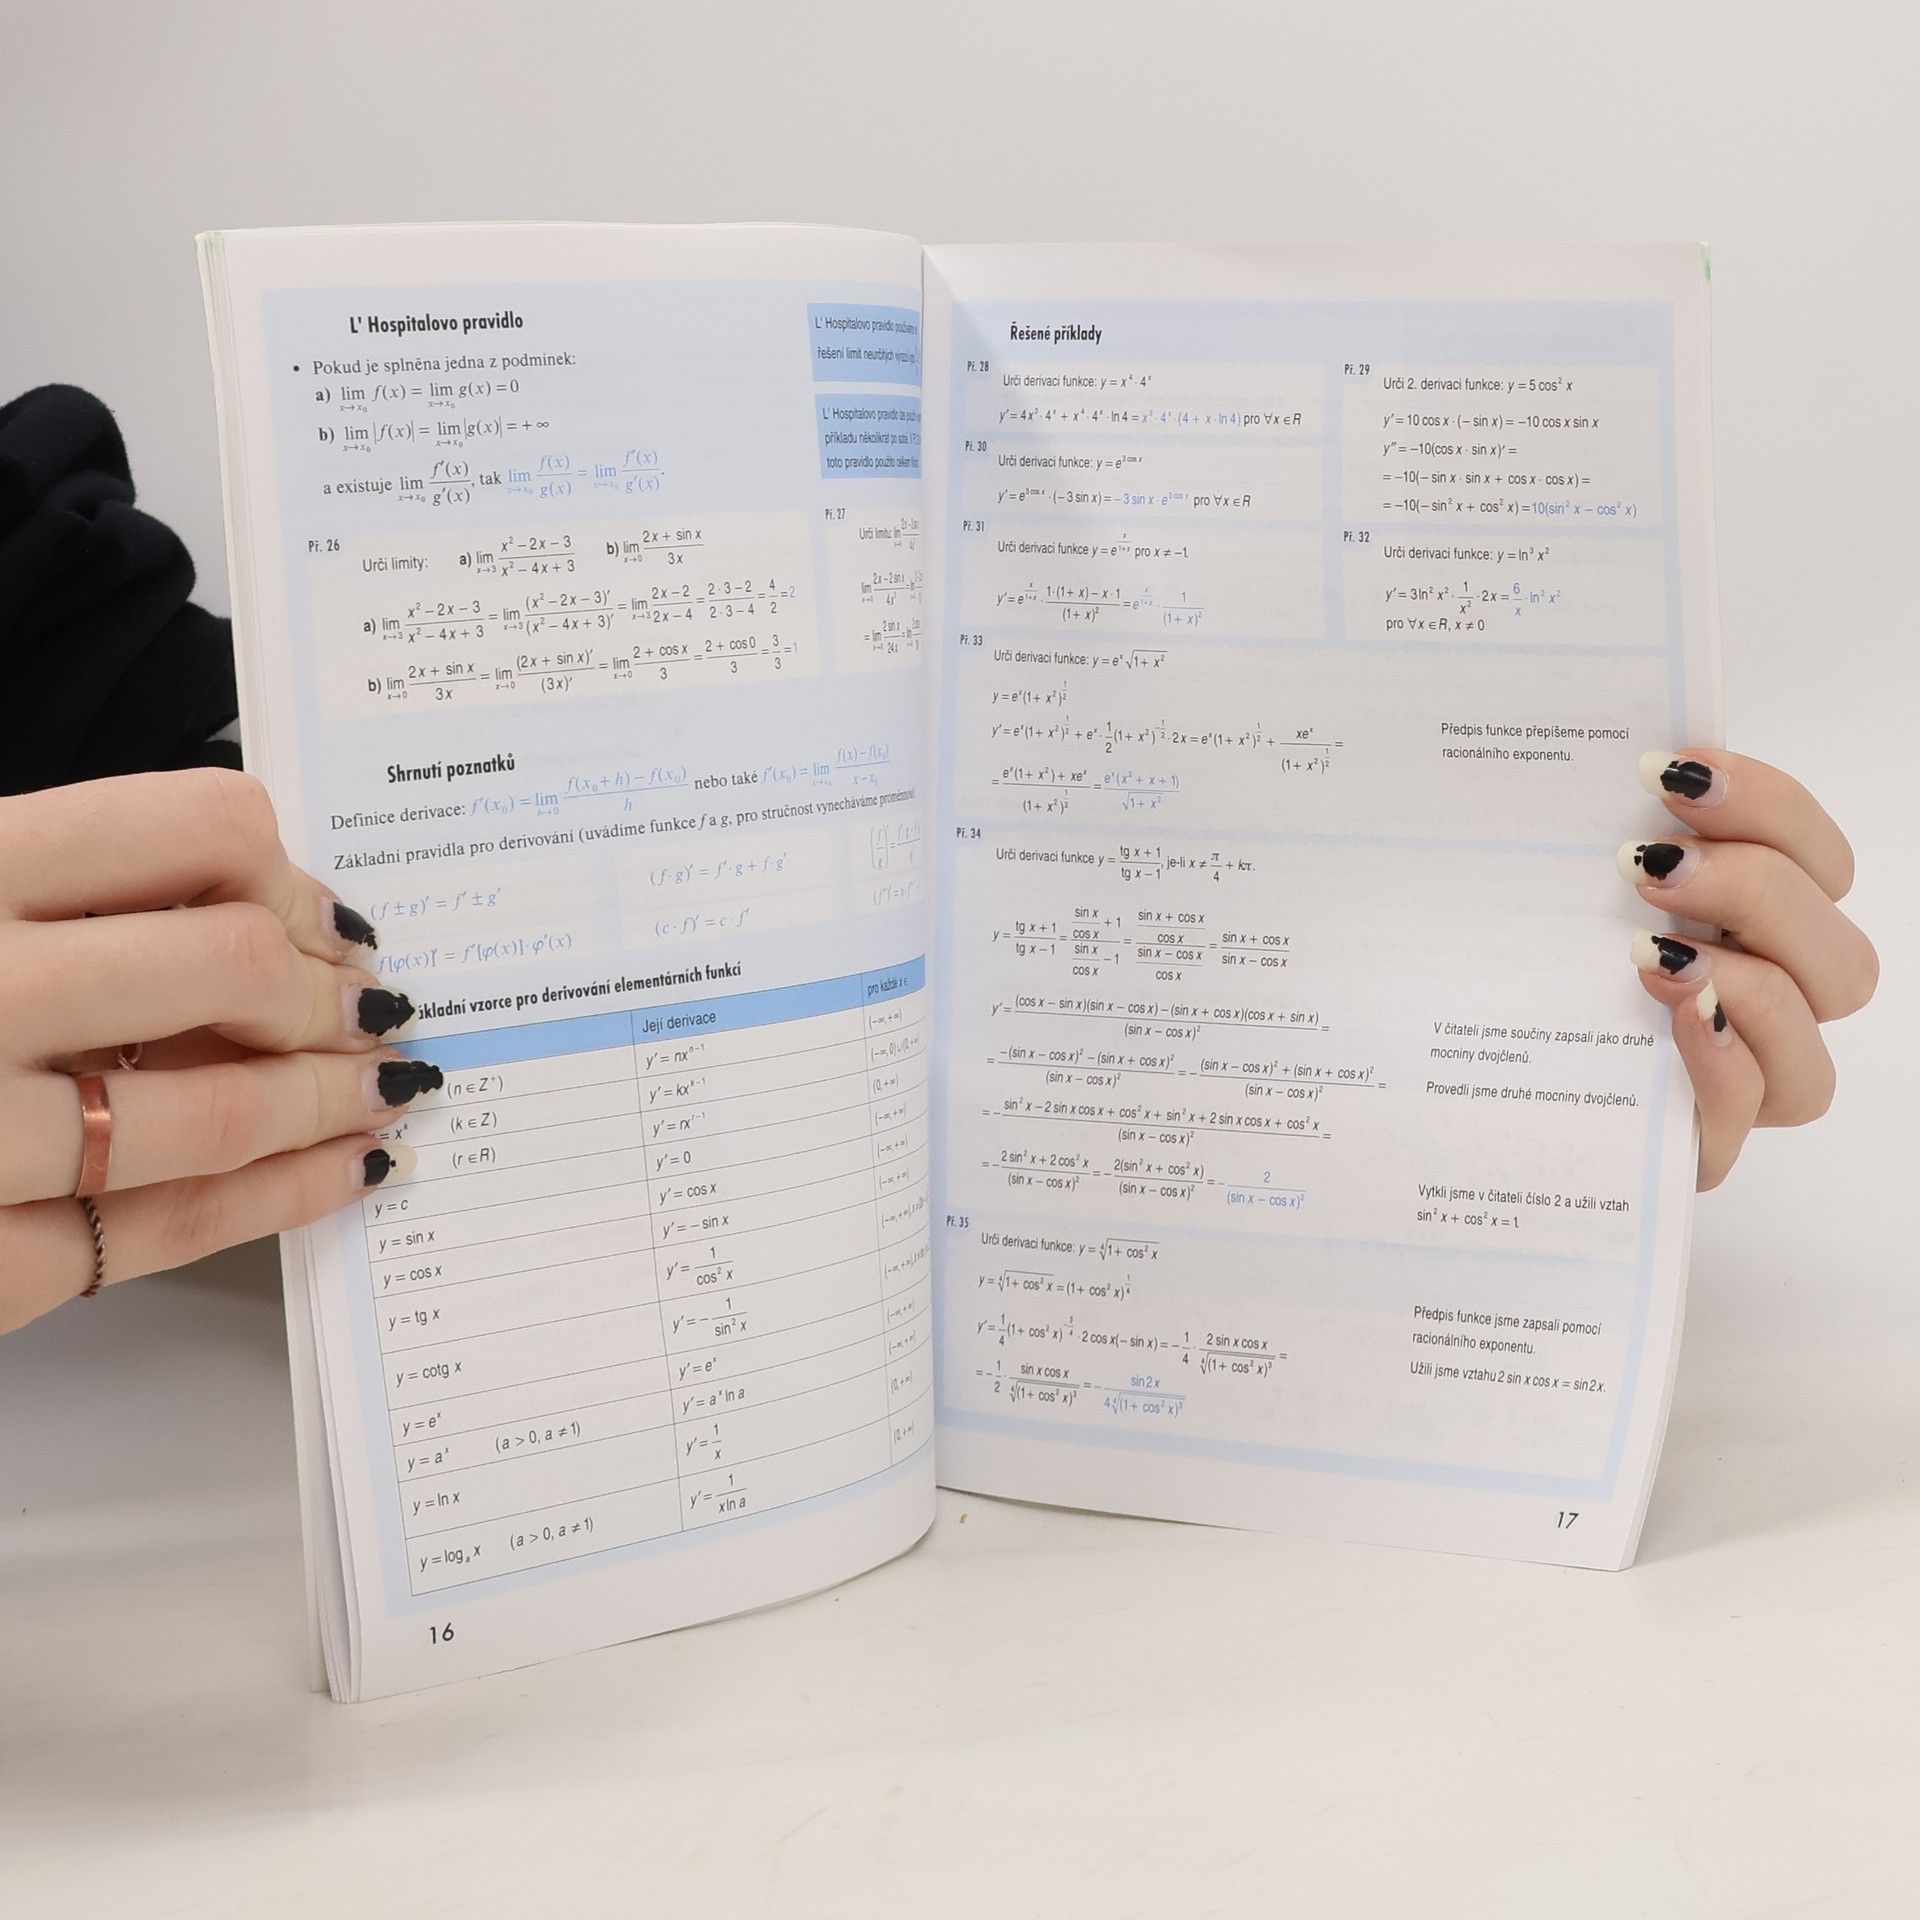 L' Hospitalovo pravidlo
• Pokud je splněna jedna z podmínek:
a) lim x→x₀ f(x) = lim x→x₀ g(x) = 0
b) lim x→x₀ |f(x)| = lim x→x₀ |g(x)| = + ∞
a existuje lim x→x₀ f′(x)/g′(x), tak lim x→x₀ f(x)/g(x) = lim x→x₀ f′(x)/g′(x).
L' Hospitalovo pravidlo
řešení limit neurčitých
L' Hospitalovo pravidlo lze
příkladu několikrát po sobě.
toto pravidlo použito
Př. 26
Urči limity: a) lim x→3 (x² − 2x − 3)/(x² − 4x + 3) b) lim x→0 (2x + sin x)/3x
a) lim x→3 (x² − 2x − 3)/(x² − 4x + 3) = lim x→3 (x² − 2x − 3)′/(x² − 4x + 3)′ = lim x→3 (2x − 2)/(2x − 4) = (2·3 − 2)/(2·3 − 4) = 4/2 = 2
b) lim x→0 (2x + sin x)/3x = lim x→0 (2x + sin x)′/(3x)′ = lim x→0 (2 + cos x)/3 = (2 + cos 0)/3 = 3/3 = 1
Př. 27
Urči limitu: lim
Shrnutí poznatků
Definice derivace: f′(x₀) = lim h→0 (f(x₀ + h) − f(x₀))/h nebo také f′(x₀) = lim x→x₀ (f(x) − f(x₀))/(x − x₀)
Základní pravidla pro derivování (uvádíme funkce f a g, pro stručnost vynecháváme proměnnou
(f ± g)′ = f′ ± g′
(f·g)′ = f′·g + f·g′
f[φ(x)]′ = f′[φ(x)]·φ′(x)
(c · f)′ = c · f′
ákladní vzorce pro derivování elementárních funkcí
Její derivace pro každé x ∈
(n ∈ Z⁺) y′ = nxⁿ⁻¹ (−∞, +∞)
= xᵏ (k ∈ Z) y′ = kxᵏ⁻¹ (−∞, 0) ∪ (0, +∞)
(r ∈ R) y′ = rxʳ⁻¹ (0, +∞)
y = c y′ = 0 (−∞, +∞)
y = sin x y′ = cos x (−∞, +∞)
y = cos x y′ = − sin x (−∞, +∞)
y = tg x y′ = 1/cos² x
y = cotg x y′ = − 1/sin² x
y = eˣ y′ = eˣ (−∞, +∞)
y = aˣ (a > 0, a ≠ 1) y′ = aˣ ln a (−∞, +∞)
y = ln x y′ = 1/x (0, +∞)
y = logₐ x (a > 0, a ≠ 1) y′ = 1/(x ln a) (0, +∞)
16
Řešené příklady
Př. 28
Urči derivaci funkce: y = x⁴ · 4ˣ
y′ = 4x³ · 4ˣ + x⁴ · 4ˣ · ln 4 = x³ · 4ˣ · (4 + x · ln 4) pro ∀x ∈ R
Př. 29
Urči 2. derivaci funkce: y = 5 cos² x
y′ = 10 cos x · (− sin x) = −10 cos x sin x
y″ = −10(cos x · sin x)′ =
= −10(− sin x · sin x + cos x · cos x) =
= −10(− sin² x + cos² x) = 10(sin² x − cos² x)
Př. 30
Urči derivaci funkce: y = e^(3 cos x)
y′ = e^(3 cos x) · (− 3 sin x) = − 3 sin x · e^(3 cos x) pro ∀x ∈ R
Př. 31
Urči derivaci funkce y = e^(x/(1+x)) pro x ≠ −1.
y′ = e^(x/(1+x)) · (1·(1 + x) − x·1)/(1 + x)² = e^(x/(1+x)) · 1/(1 + x)²
Př. 32
Urči derivaci funkce: y = ln³ x²
y′ = 3 ln² x² · 1/x² · 2x = 6/x · ln² x²
pro ∀x ∈ R, x ≠ 0
Př. 33
Urči derivaci funkce: y = eˣ √(1 + x²)
y = eˣ(1 + x²)^(1/2)
y′ = eˣ(1 + x²)^(1/2) + eˣ · 1/2 (1 + x²)^(−1/2) · 2x = eˣ(1 + x²)^(1/2) + xeˣ/(1 + x²)^(1/2) =
Předpis funkce přepíšeme pomocí
racionálního exponentu.
= (eˣ(1 + x²) + xeˣ)/(1 + x²)^(1/2) = eˣ(x² + x + 1)/√(1 + x²)
Př. 34
Urči derivaci funkce y = (tg x + 1)/(tg x − 1), je-li x ≠ π/4 + kπ.
y = (tg x + 1)/(tg x − 1) = (sin x/cos x + 1)/(sin x/cos x − 1) = ((sin x + cos x)/cos x)/((sin x − cos x)/cos x) = (sin x + cos x)/(sin x − cos x)
y′ = ((cos x − sin x)(sin x − cos x) − (sin x + cos x)(cos x + sin x))/(sin x − cos x)² =
V čitateli jsme součiny zapsali jako druhé
mocniny dvojčlenů.
= (−(sin x − cos x)² − (sin x + cos x)²)/(sin x − cos x)² = − ((sin x − cos x)² + (sin x + cos x)²)/(sin x − cos x)² =
Provedli jsme druhé mocniny dvojčlenů.
= − (sin² x − 2 sin x cos x + cos² x + sin² x + 2 sin x cos x + cos² x)/(sin x − cos x)² =
= − (2 sin² x + 2 cos² x)/(sin x − cos x)² = − 2(sin² x + cos² x)/(sin x − cos x)² = − 2/(sin x − cos x)²
Vytkli jsme v čitateli číslo 2 a užili vztah
sin² x + cos² x = 1.
Př. 35
Urči derivaci funkce: y = ⁴√(1 + cos² x)
y = ⁴√(1 + cos² x) = (1 + cos² x)^(1/4)
Předpis funkce jsme zapsali pomocí
racionálního exponentu.
y′ = 1/4 (1 + cos² x)^(−3/4) · 2 cos x(− sin x) = − 1/4 · 2 sin x cos x/⁴√(1 + cos² x)³ =
Užili jsme vztahu 2 sin x cos x = sin 2x.
= − 1/2 · sin x cos x/⁴√(1 + cos² x)³ = − sin 2x/4 ⁴√(1 + cos² x)³
17